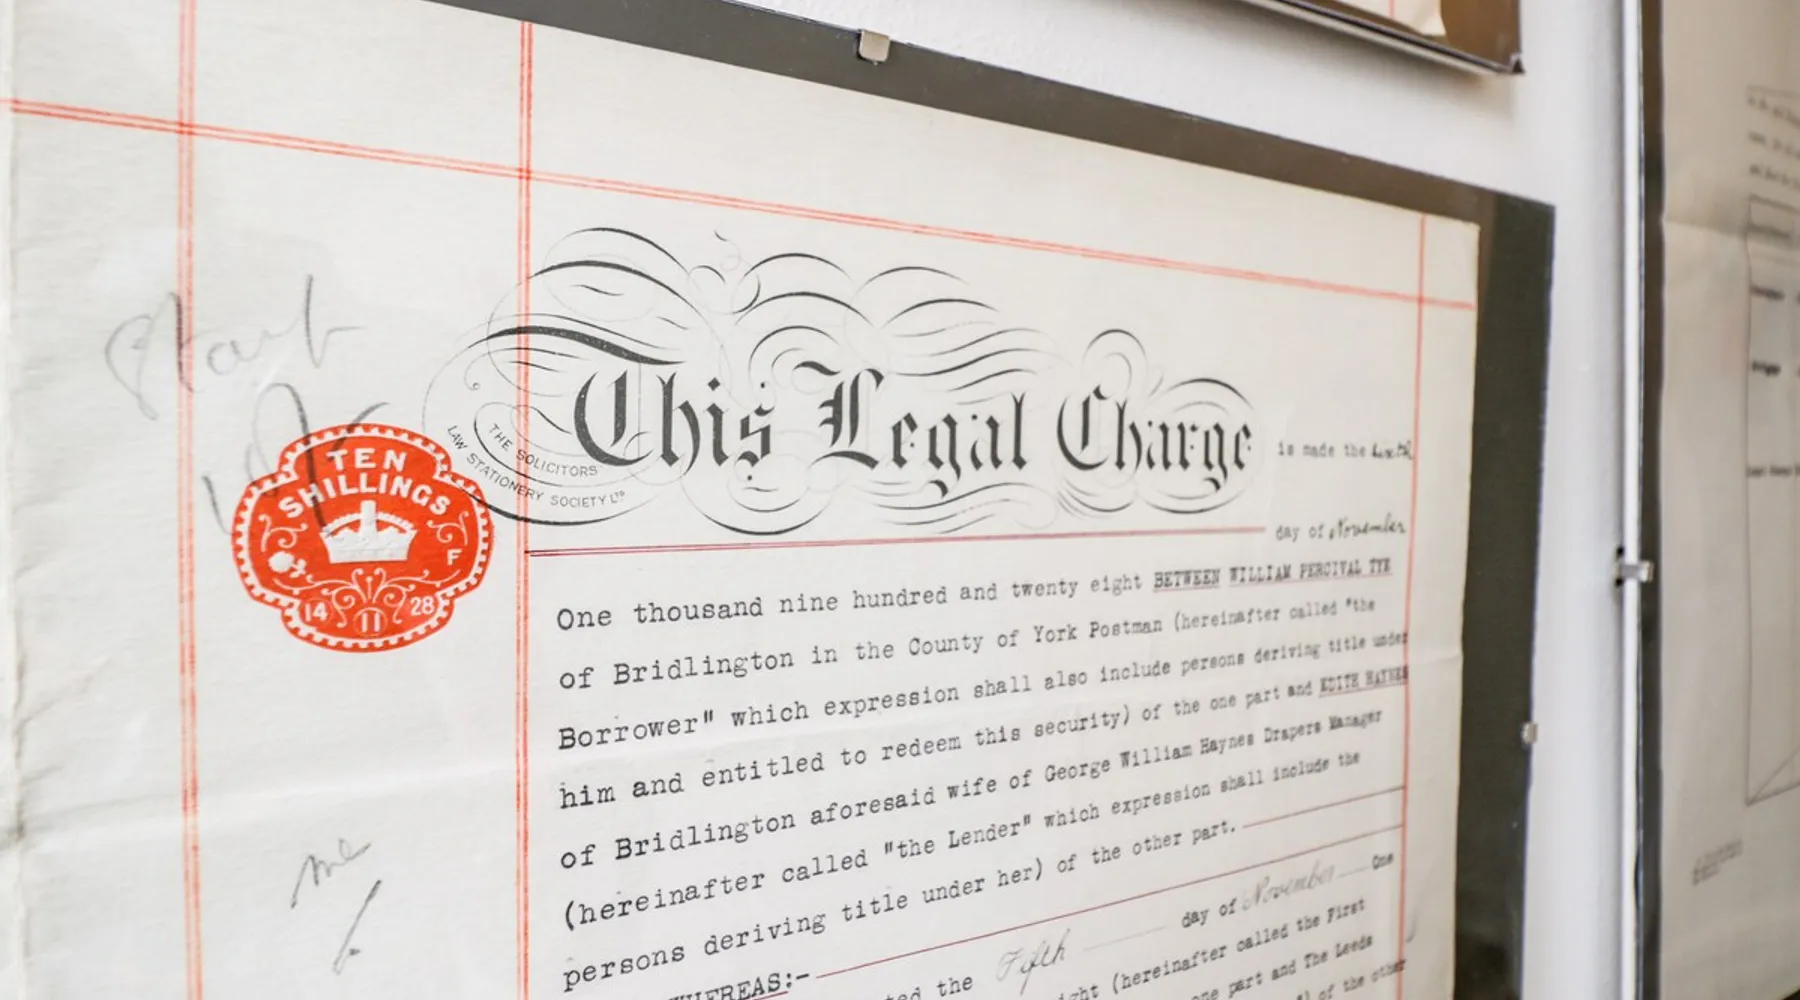 Start
TEN
SHILLINGS
F
14 11 28
THE SOLICITORS
LAW STATIONERY SOCIETY LTD
This Legal Charge is made the Sixth
day of November
One thousand nine hundred and twenty eight BETWEEN WILLIAM PERCIVAL TYE
of Bridlington in the County of York Postman (hereinafter called "the
Borrower" which expression shall also include persons deriving title under
him and entitled to redeem this security) of the one part and EDITH HAYNES
of Bridlington aforesaid wife of George William Haynes Drapers Manager
(hereinafter called "the Lender" which expression shall include the
persons deriving title under her) of the other part.
WHEREAS:-
the Fifth day of November One
(hereinafter called the First
part and The Leeds
of the other